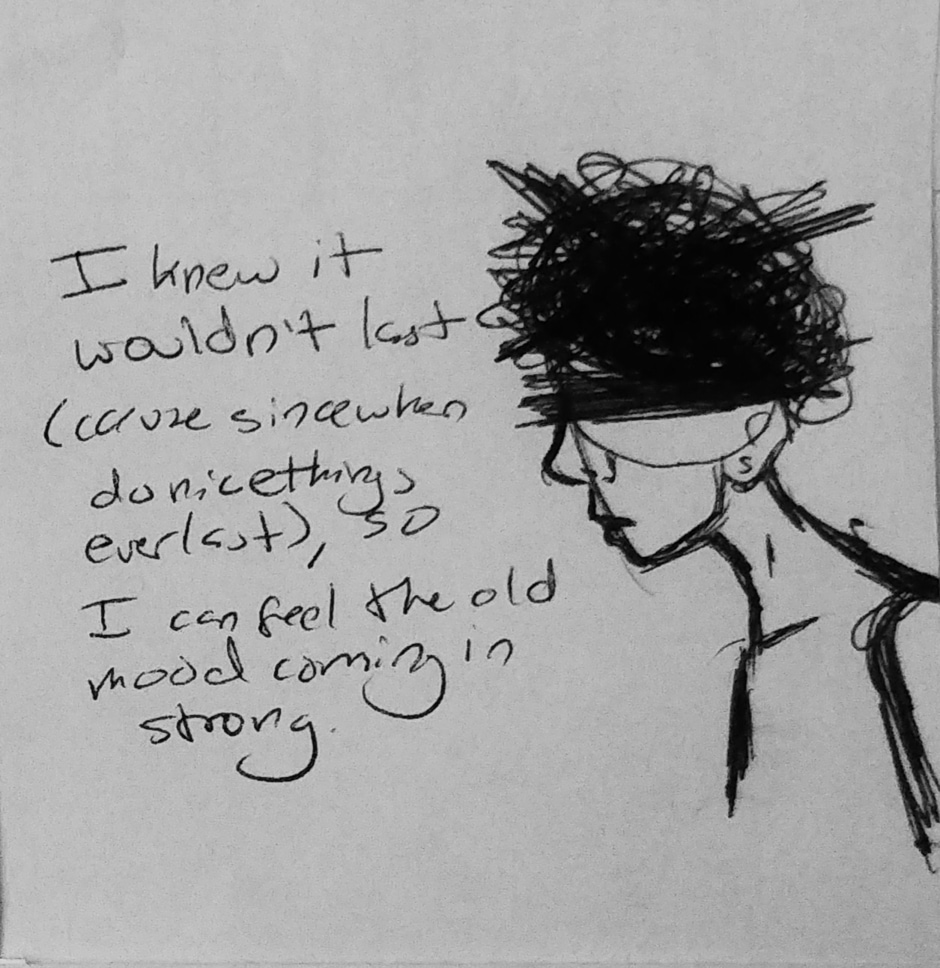 I knew it
wouldn't last
(cause since when
do nice things
ever last), so
I can feel the old
mood coming in
strong.